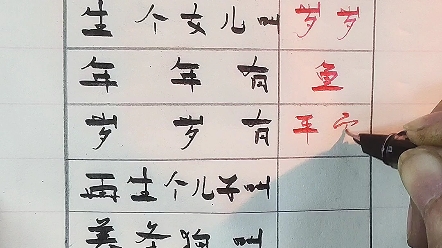 生个女儿叫 岁岁
年年有 鱼
岁岁有 平
再生个儿子叫
养条狗叫